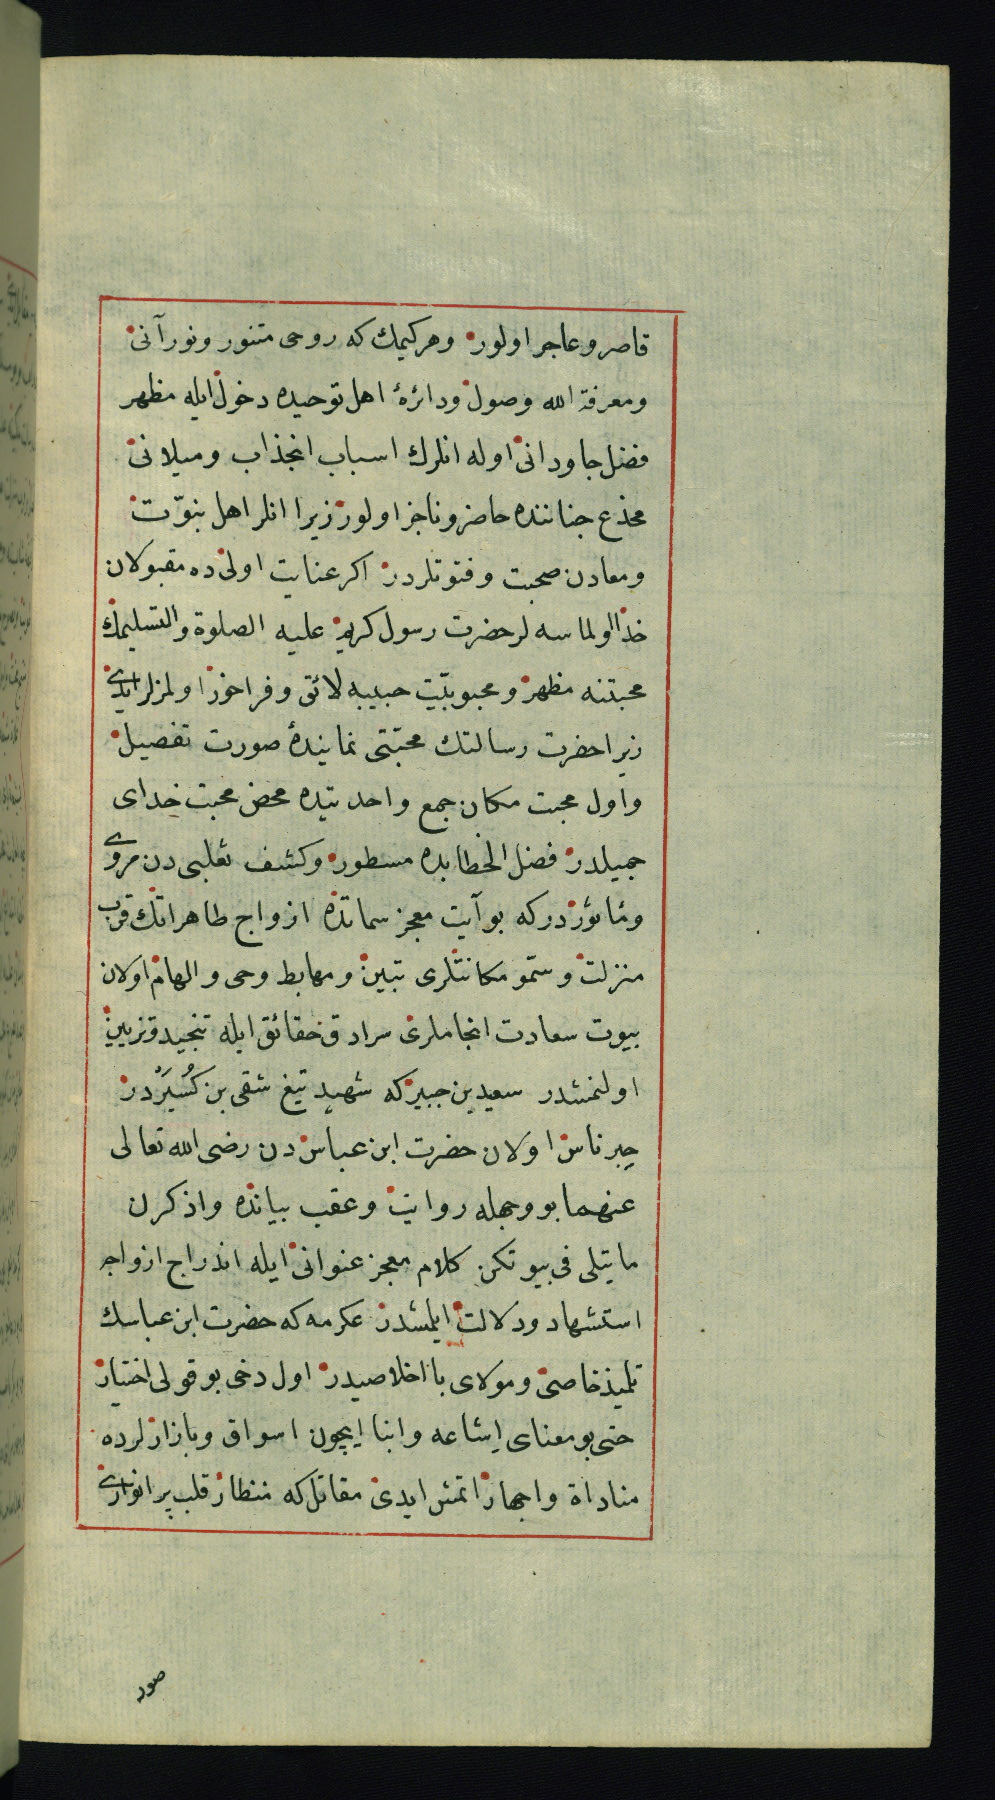 قاصر وعاجر اولور وهر كيمك كه روحى متنور ونور آنى
ومعرفة الله وصول ودائرۀ اهل توحيده دخول ايله مظهر
فضل جاودانى اوله انلرك اسباب انجذاب وميلانى
مخذع جناننده حاضر وناجز اولور زيرا انلر اهل نبوّت
ومعادن صحبت وفتوتلردر اكر عنايت اولى ده مقبولان
خذا اولماسه لر حضرت رسول كريم عليه الصلوة والتسليمك
محبتنه مظهر ومحبوبيّت حبيبه لائق وفراخور اولمزلر ايدى
زيرا حضرت رسالتك محبّتى نمايندۀ صورت تفصيل
واول محبت مكان جمع واحديتده محض محبت خداى
جميلدر فضل الخطابده مسطور وكشف ثعلبى دن مروى
ومأثوردر كه بو آيت معجز سماتده ازواج طاهراتك قرب
منزلت وسمّو مكانتلرى تبيين ومهابط وحى والهام اولان
بيوت سعادت انجاملرى سرادق حقائق ايله تنجيد وتزيين
اولنمشدر سعيد بن جبير كه شهيد تيغ شقى بن كُسَيَرْدر
حِبر ناس اولان حضرت ابن عباس دن رضى الله تعالى
عنهما بو وجهله روايت وعقب بيانده واذكرن
ما يتلى فى بيوتكن كلام معجز عنوانى ايله اندراج ازواجه
استشهاد ودلالت ايلمشدر عكرمه كه حضرت ابن عباسك
تلميذ خاصى ومولاى با اخلاصيدر اول دخى بو قولى اختيار
حتى بو معناى اِشاعه وانبا ايچون اسواق وبازارلرده
مناداة واجهار اتمش ايدى مقاتل كه منظار قلب پر انوارى
صور